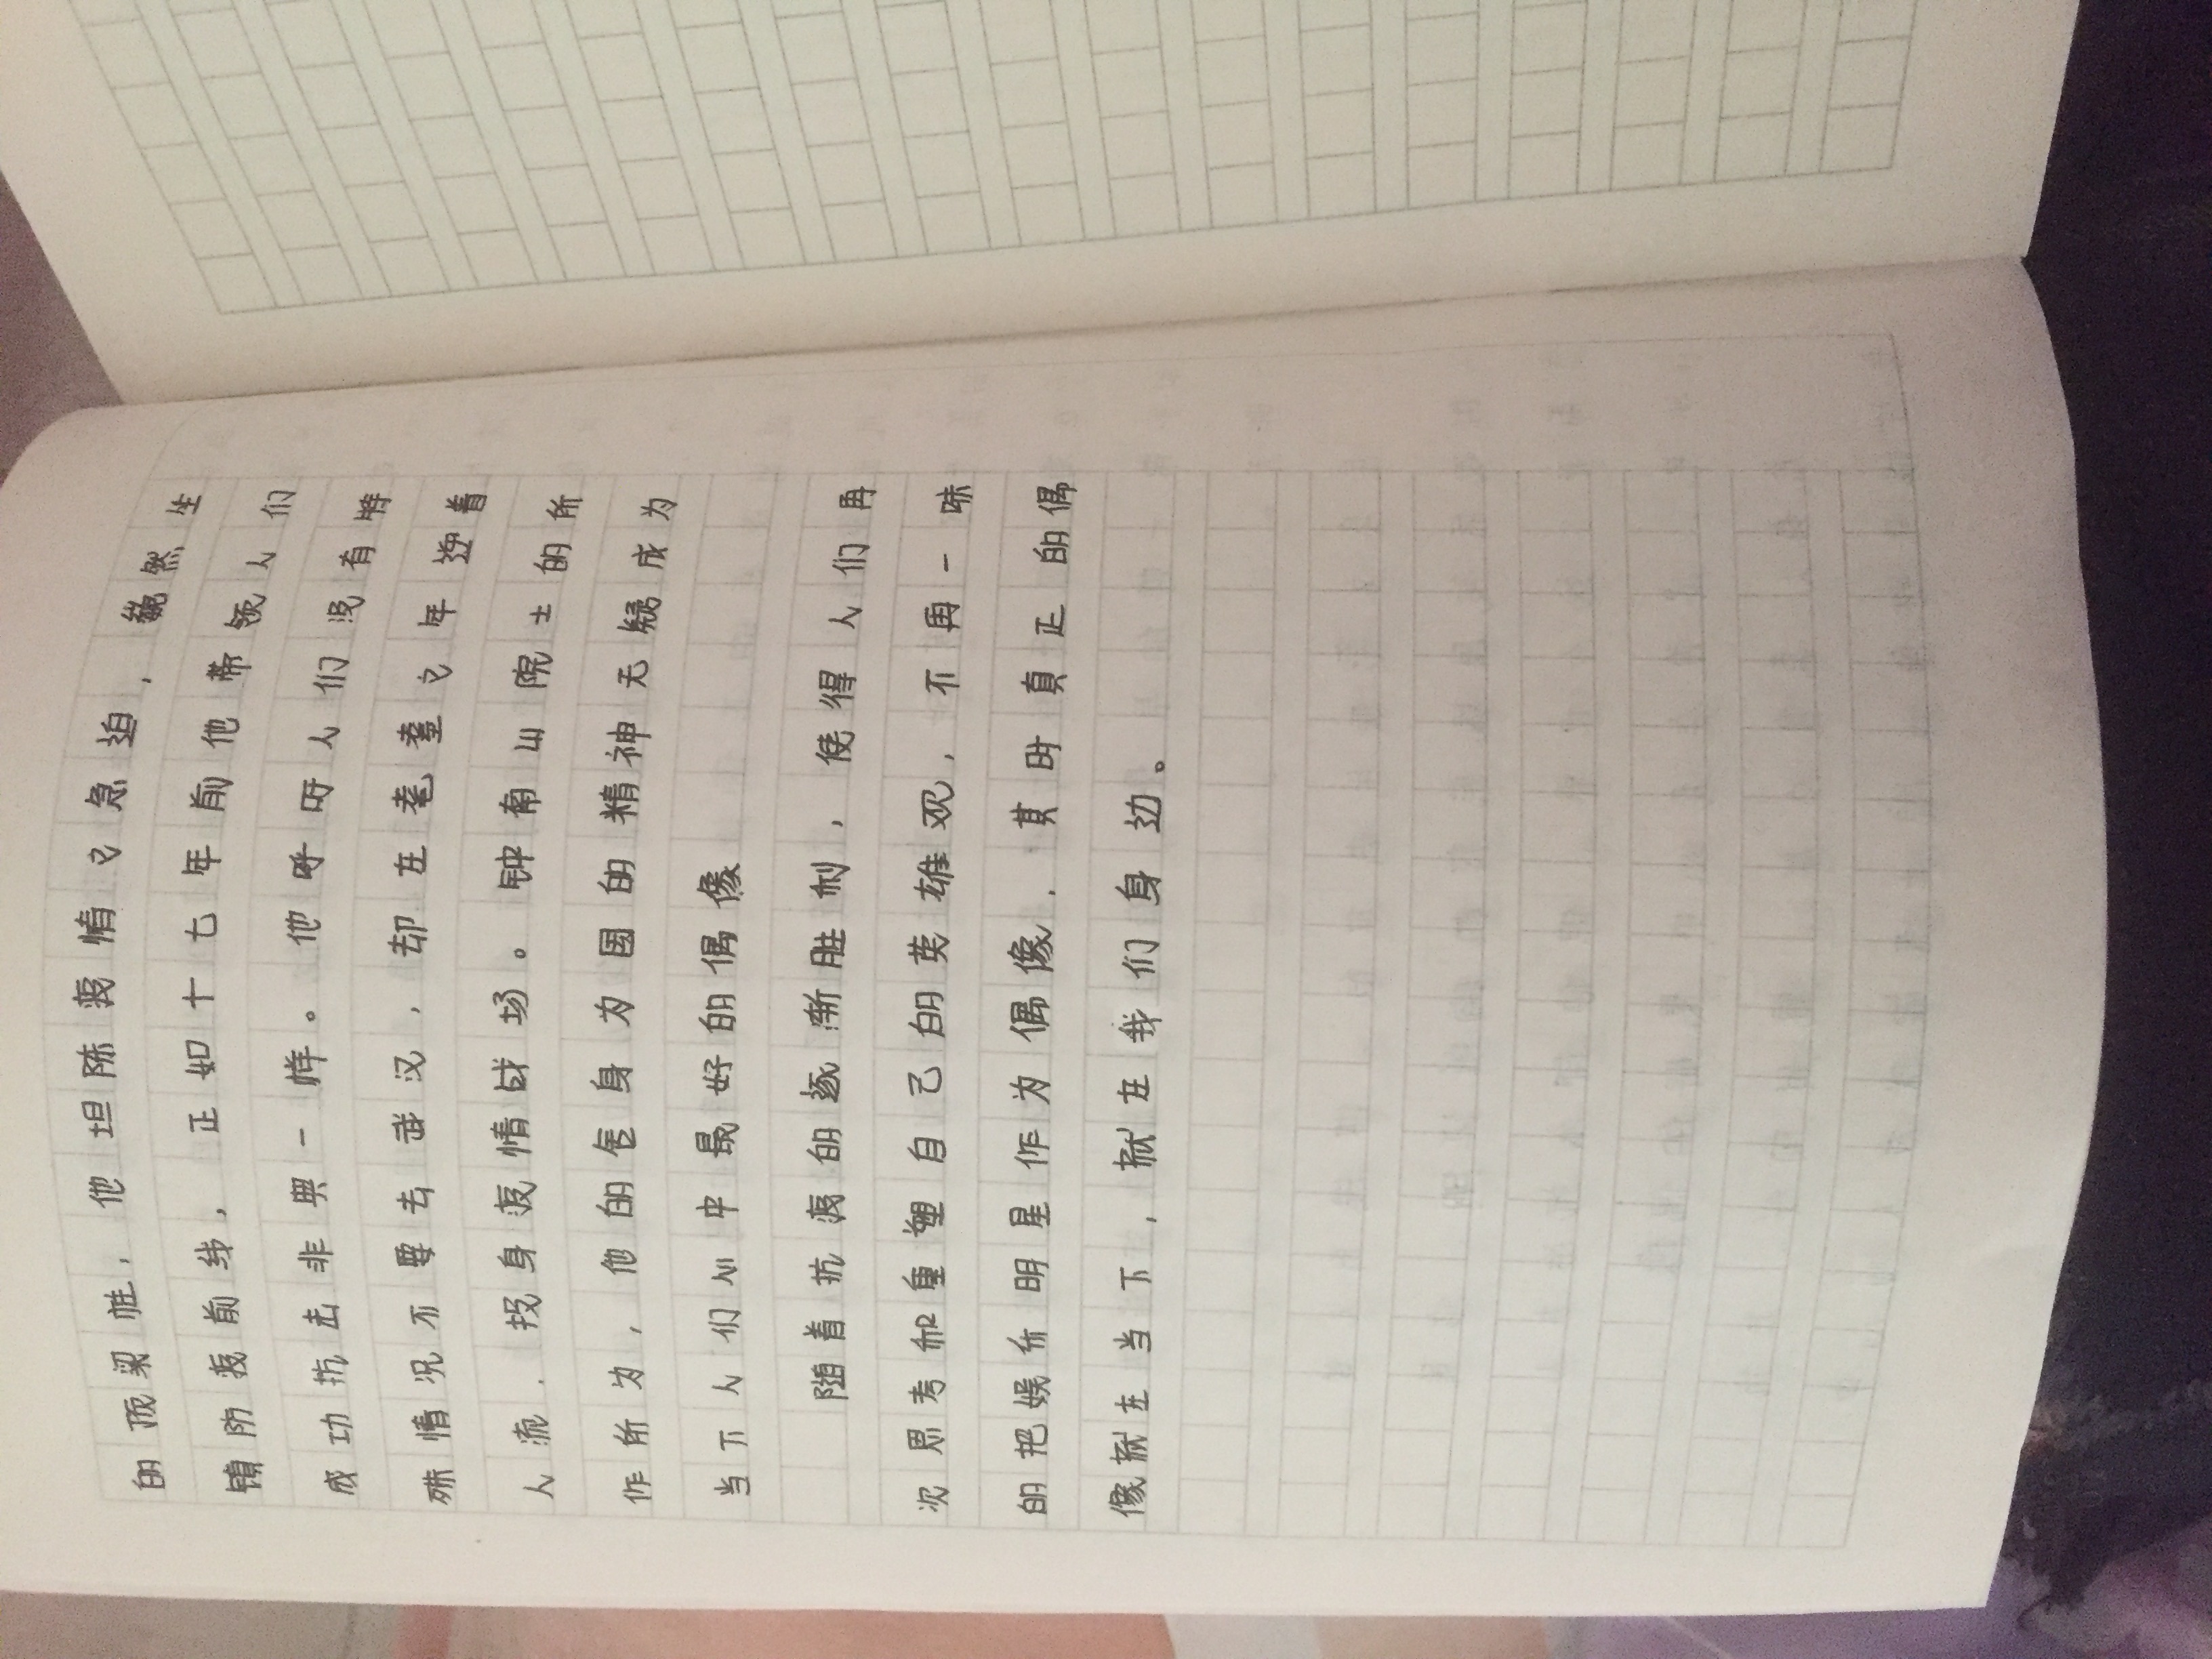 的顶梁桩，他坦陈疫情之急迫，巍然坐
镇防疫前线，正如十七年前他带领人们
成功抗击非典一样。他呼吁人们没有特
殊情况不要去武汉，却在耄耋之年逆着
人流，投身疫情战场。钟南山院士的所
作所为，他的舍身为国的精神无疑成为
当下人们心中最好的偶像
随着抗疫的逐渐胜利，使得人们再
次思考和重塑自己的英雄观，不再一味
的把娱乐明星作为偶像，其时真正的偶
像就在当下，就在我们身边。